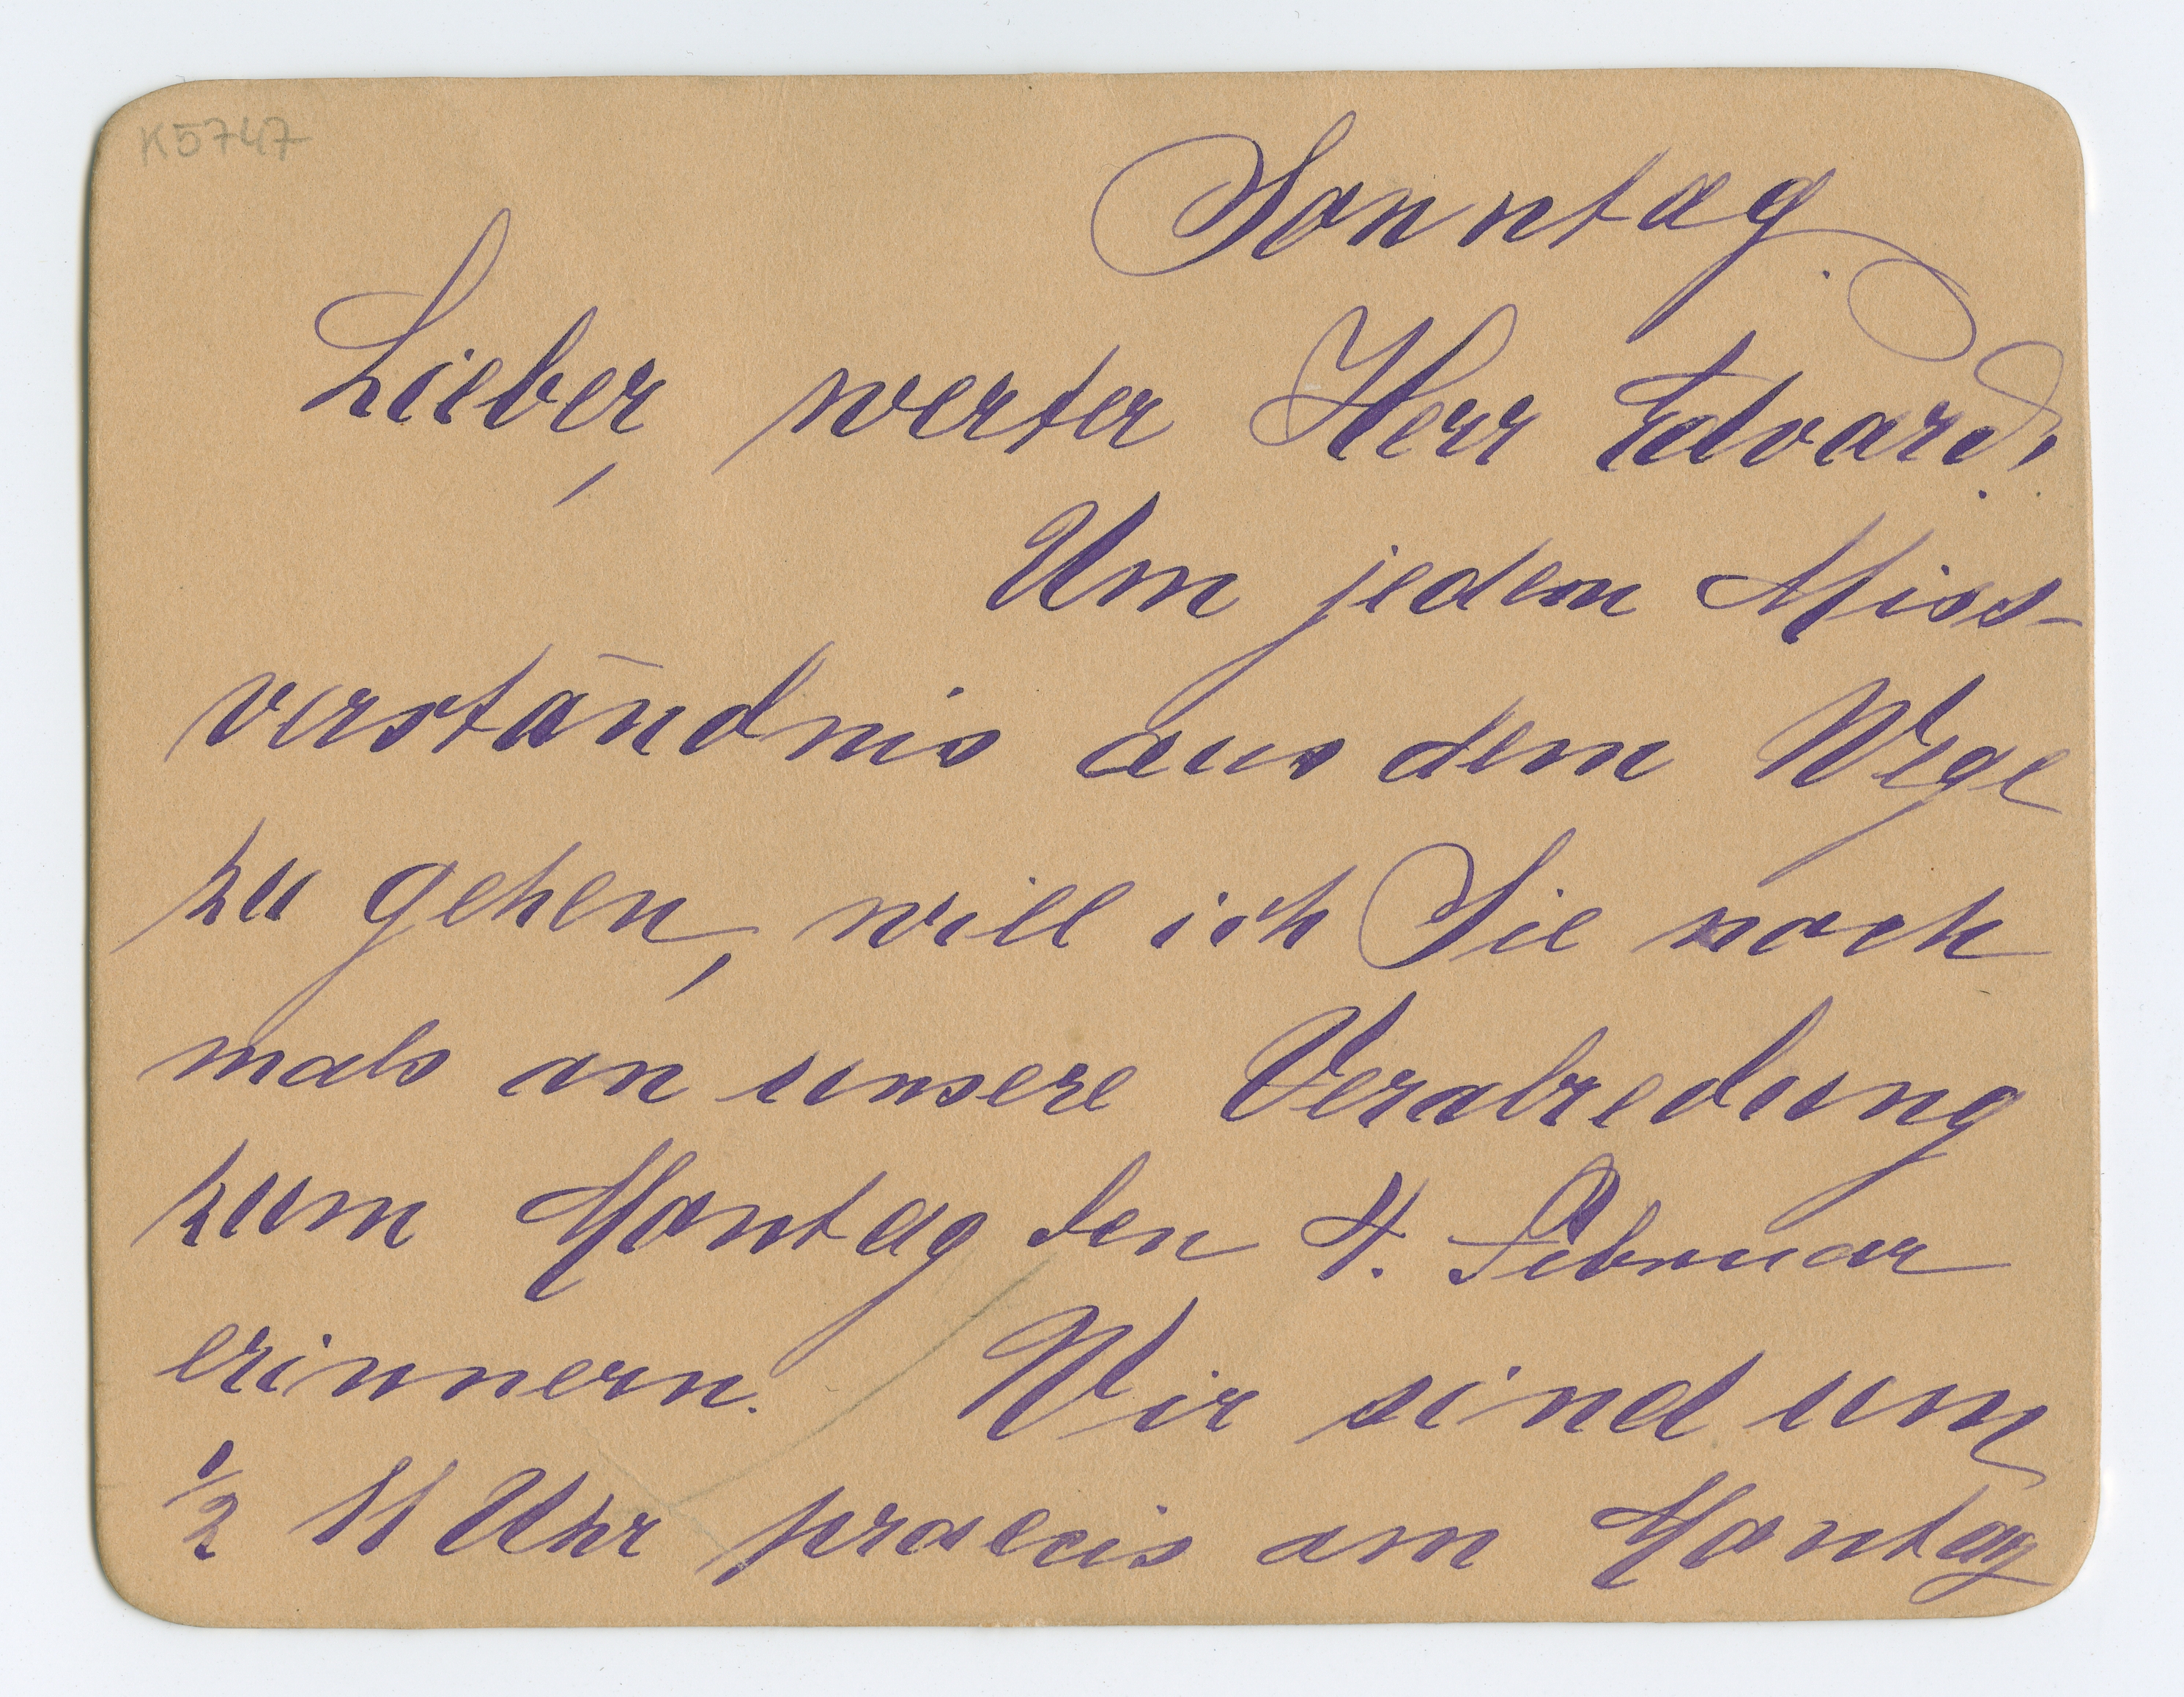 K5747
Sonntag.
Lieber, werter Herr Edvard!
Um jedem Miss-
verständnis aus dem Wege
zu gehen, will ich Sie noch
mals an unsere Verabredung
zum Montag den 4. Februar
erinnern. Wir sind um
1/2 11 Uhr praecis am Montag